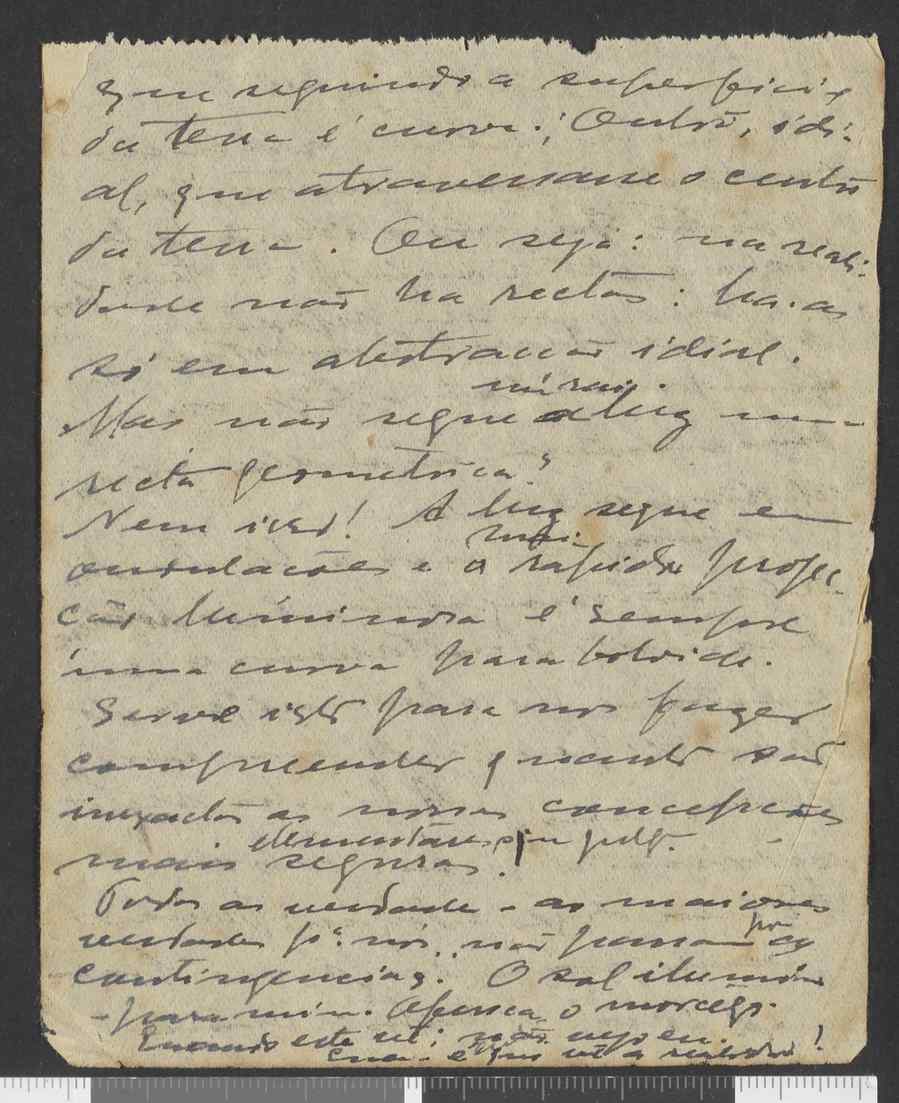 que seguindo a superficie
da terra é curva.; Outra, idi-
al, que atravessasse o centro
da terra. Ou seja: na reali-
dade não ha rectas: ha-as
só em abstracção idial.
Mas não segue a luz uma
recta geometrica?
Nem isso! A luz segue em
ondulações e a mais rapida projec-
ção luminosa é sempre
uma curva paraboloide.
Serve isto para nos fazer
compreender quanto são
inexactas as nossas concepções
elementares
mais seguras.
Todas as verdades - as maiores
verdades pª nós, não passam
contingencias. O sol ilumina
- para mim. o morcego.
Quando este vê; não vejo eu.
é que vê a !